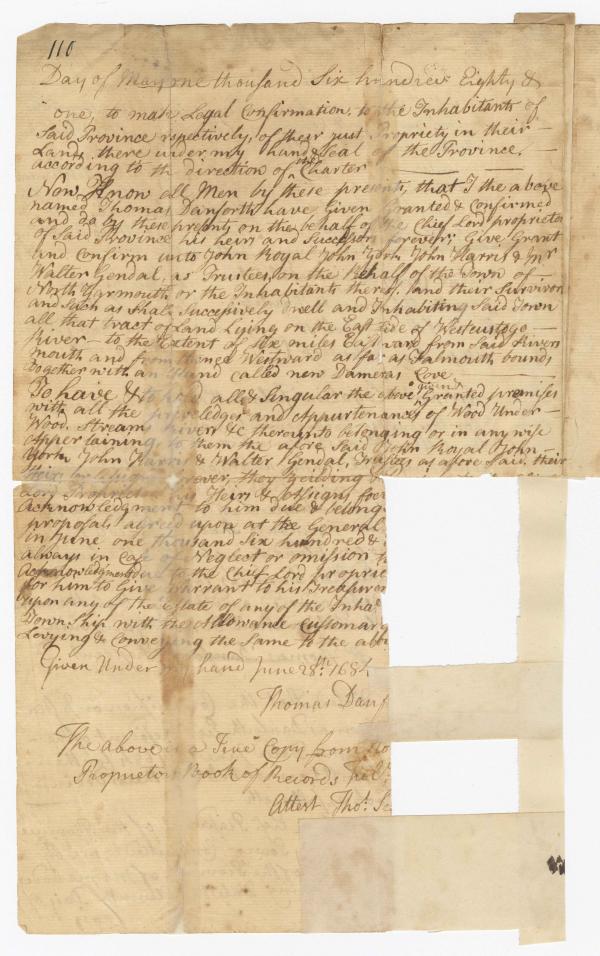 110
Day of May one thousand Six hundred Eighty &
one, to make Legal Confirmation, to the Inhabitants of
Said Province respetively, of their just Propriety in their
Lands there under my hand & Seal of the Province.
according to the direction of their Charter
Now Know all Men by these presents, that I the above
named Thomas Danforth have Given Granted & Confirmed
and do by these presents on the behalf of the Chief Lord proprietor
of Said Province his heirs and Successors forever; Give Grant
and Confirm unto John Royal John York John Harris & Mr
Walter Gendal, as Trustees, on the Behalf of the Town of
North Yarmouth or the Inhabitants thereof, and their Survivor
and Such as Shall Succesively dwell and Inhabiting Said Town
all that tract of Land Lying on the East Side of Westcustogo
River to the Extent of Six miles Eastward from Said Rivers
mouth and from thence Westward as far as Falmouth bounds
together with an Island called new Dameras Cove
To have & to hold all & Singular the above given & Granted premises
with all the priveledges and Appurtenances of Wood Under
Wood Streams Rivers &c thereunto belonging or in any wise
Apperlaining to them the afore Said John Royal John
York John Harris & Walter Gendal, Trustees as afore Said, their
Heirs or assigns forever, they Yeilding
Proprietor his Heirs & Assigns for
Acknowledgment to him due & belong
proposals agreed upon at the General
in June one thousand Six hundred &
always in Case of Neglect or omission to
Acknowledgment to the Chief Lord proprie
for him to Give Warrant to his Treasurer
upon any of the Estate of any of the Inha
Town Ship with the Allowance Customar
Levying & Conveying the Same to the abo
Given Under my hand June 28th 1684
Thomas Danf
The above is a True Copy from
Proprietors Book of Records
Attest Thos.